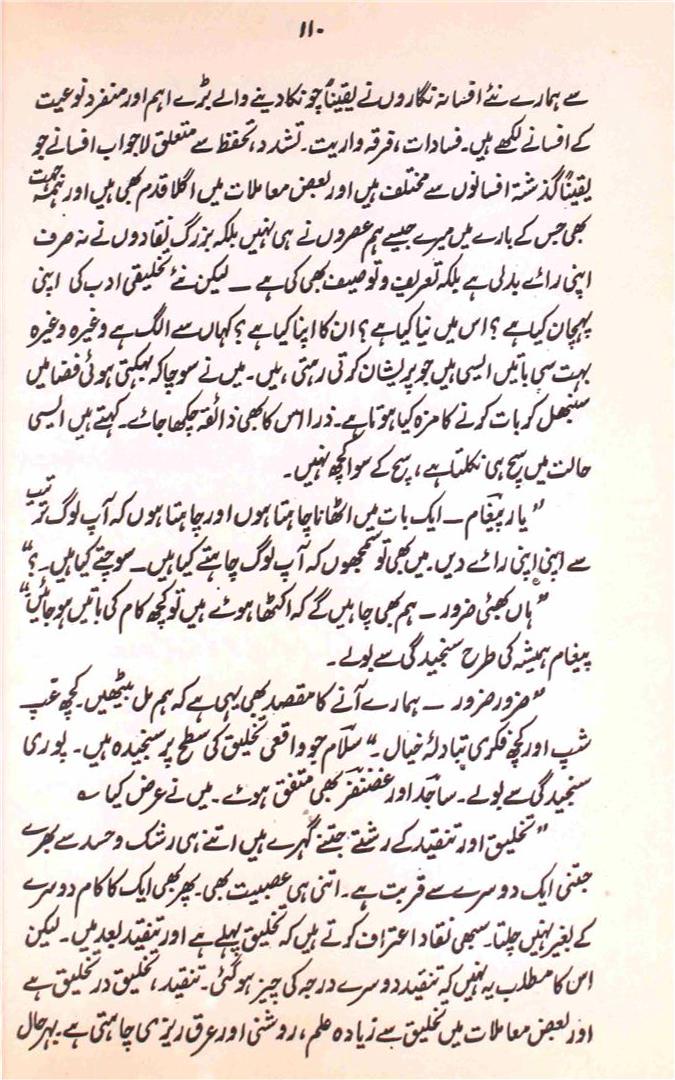 ۱۱۰
سے ہمارے نئے افسانہ نگاروں نے یقیناً چونکا دینے والے بڑے اہم اور منفرد نوعیت
کے افسانے لکھے ہیں۔ فسادات، فرقہ واریت۔ تشدد، تحفظ سے متعلق لاجواب افسانے جو
یقیناً گذشتہ افسانوں سے مختلف ہیں اور بعض معاملات میں اگلا قدم بھی ہیں اور ہمہ جہت
بھی جس کے بارے میں میرے جیسے ہم عصروں نے ہی نہیں بلکہ بزرگ نقادوں نے نہ صرف
اپنی رائے بدلی ہے بلکہ تعریف و توصیف بھی کی ہے ــ لیکن نئے تخلیقی ادب کی اپنی
پہچان کیا ہے ؟ اس میں نیا کیا ہے ؟ ان کا اپنا کیا ہے ؟ کہاں سے الگ ہے وغیرہ وغیرہ
بہت سی باتیں ایسی ہیں جو پریشان کرتی رہتی ہیں۔ میں نے سوچا کہ بہکتی ہوئی فضا میں
سنبھل کر بات کرنے کا مزہ کیا ہوتا ہے۔ ذرا اس کا بھی ذائقہ چکھا جائے۔ کہتے ہیں ایسی
حالت میں سچ ہی نکلتا ہے، سچ کے سوا کچھ نہیں۔
”یار پیغام ــ ایک بات میں اٹھانا چاہتا ہوں اور چاہتا ہوں کہ آپ لوگ ترتیب
سے اپنی اپنی رائے دیں۔ میں بھی تو سمجھوں کہ آپ لوگ چاہتے کیا ہیں ــ سوچتے کیا ہیں۔ ؟“
”ہاں بھئی ضرور ــ ہم بھی چاہیں گے کہ اکٹھا ہوئے ہیں تو کچھ کام کی باتیں ہو جائیں“
پیغام ہمیشہ کی طرح سنجیدگی سے بولے۔
”ضرور ضرور ــ ہمارے آنے کا مقصد بھی یہی ہے کہ ہم مل بیٹھیں۔ کچھ غپ
شپ اور کچھ فکری تبادلۂ خیال۔“ سلام جو واقعی تخلیق کی سطح پر سنجیدہ ہیں۔ پوری
سنجیدگی سے بولے۔ ساجد اور غضنفر بھی متفق ہوئے۔ میں نے عرض کیا ؎
”تخلیق اور تنقید کے رشتے جتنے گہرے ہیں اتنے ہی رشک و حسد سے بھرے
جتنی ایک دوسرے سے قربت ہے۔ اتنی ہی عصبیت بھی۔ پھر بھی ایک کا کام دوسرے
کے بغیر نہیں چلتا۔ سبھی نقاد اعتراف کرتے ہیں کہ تخلیق پہلے ہے اور تنقید بعد میں۔ لیکن
اس کا مطلب یہ نہیں کہ تنقید دوسرے درجہ کی چیز ہو گئی۔ تنقید، تخلیق در تخلیق ہے
اور بعض معاملات میں تخلیق سے زیادہ علم، روشنی اور عرق ریزی چاہتی ہے۔ بہرحال